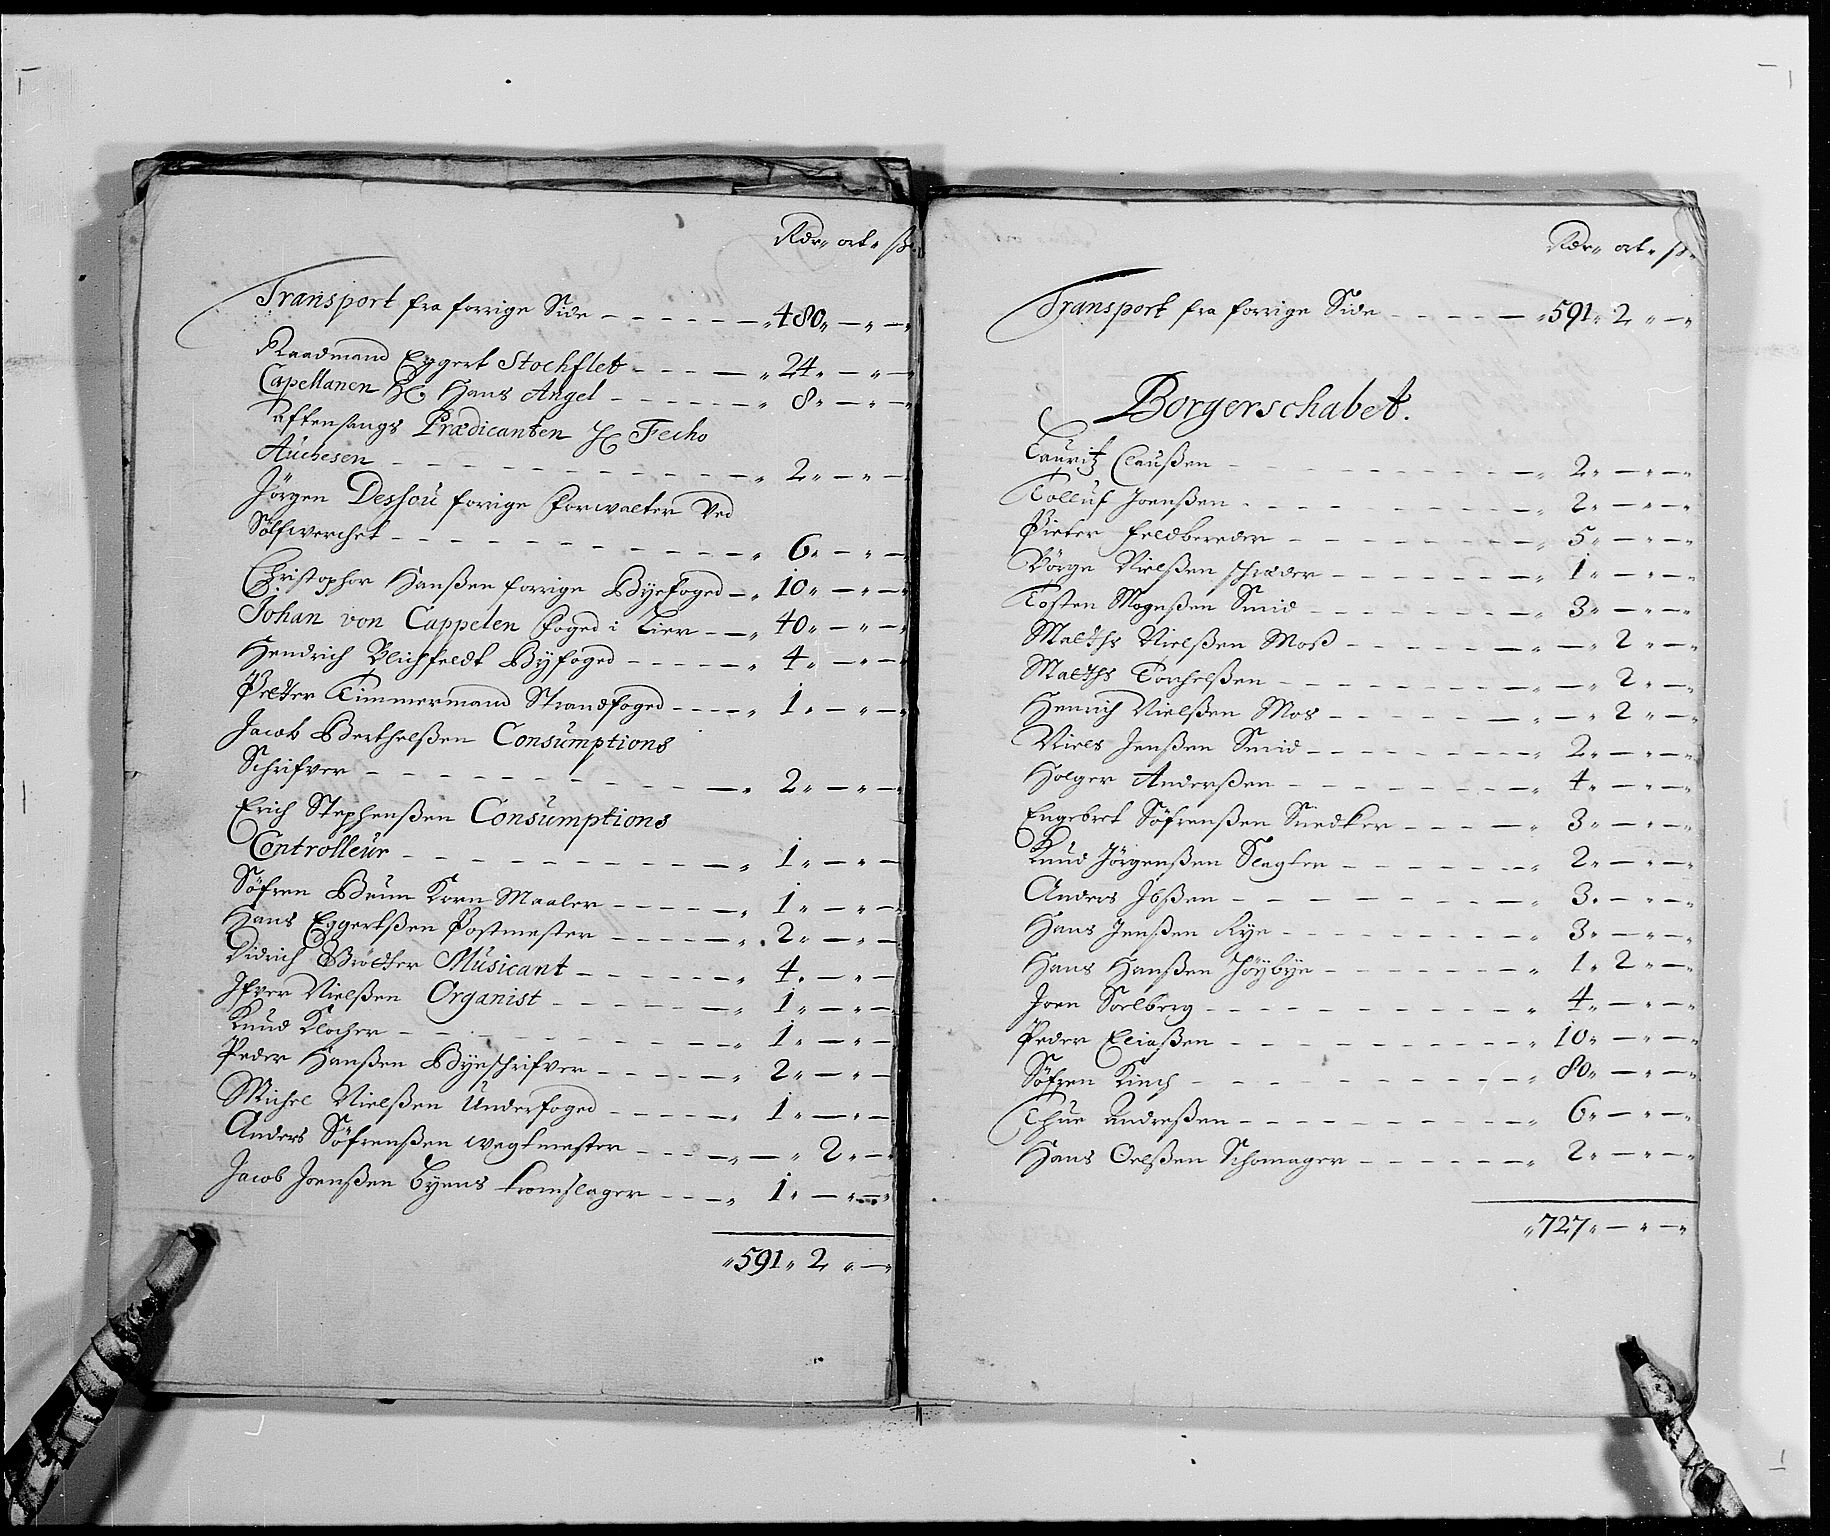 Rdr ort ß
Transport fra forrige Side - - - - - - 480 - -
Raadmand Eggert Stochflet - - - - 24 - -
Capellanen Hr. Hans Angel - - - - - 8 - -
Aftensangs Prædicanten Hr Fecho
- - - - - - - - - - 2 - -
Jörgen Dessou forige forwalter Ved
Sölfwerchet - - - - - - - - - - 6 - -
Christopher Hanßen forrige Byefoged - 10 - -
Johan von Cappelen foged i Lier - - 40 - -
Hendrich Blichfeldt Byfoged - - - - - 4 - -
Petter Timmermand Strandfoged - - - - 1 - -
Jacob Berthelßen Consumptions
Schrifver - - - - - - - - - - 2 - -
Erich Stephenßen Consumptions
Controlleur - - - - - - - - - 1 - -
Söfren Bruun Korn Maaler - - - - - 1 - -
Hans Eggertßen Postmester - - - - - 2 - -
Didrich Brödker Musicant - - - - - 4 - -
Ifver Nielßen Organist - - - - - - 1 - -
Knud Klocher - - - - - - - - - 1 - -
Peder Hanßen Byeschrifver - - - - - 2 - -
Michel Nielßen Underfoged - - - - - 1 - -
Anders Söfrenßen wegtmester - - - - - 2 -
Jacob Joenßen Byens tromslager - - - - 1 - -
591 2 -
Rdr ort ß
Transport fra forrige Side - - - - - 591 2 -
Borgerschabet.
Lauritz Claußen - - - - - - - - 2 - -
Tolluf Joenßen - - - - - - - - 2 - -
Pieter feldbereder - - - - - - - 5 - -
Börge Nielßen schræder - - - - - - 1 - -
Tosten Mogenßen Smid - - - - - - - 3 - -
Mathis Nielßen Moß - - - - - - - 2 -
Mathis Torchelßen - - - - - - - - 2 -
Henrich Nielßen Mos - - - - - - - 2 -
Niels Jenßen Smid - - - - - - - 2 - -
Holger Anderßen - - - - - - - - 4 - -
Engebret Söfrenßen Snedker - - - - - 3 - -
Knud Jörgenßen Slagter - - - - - - 2 - -
Anders Ibßen - - - - - - - - - 3 - -
Hans Jenßen Rye - - - - - - - - 3 - -
Hans Hanßen Höybye - - - - - - - 1 2 -
Joen Soelberg - - - - - - - - - 4 - -
Peder Eliaßen - - - - - - - - - 10 - -
Söfren Kinch - - - - - - - - - 80 - -
Thue Andreßen - - - - - - - - - 6 - -
Hans Oelßen Schomager - - - - - - 2 - -
727 - -